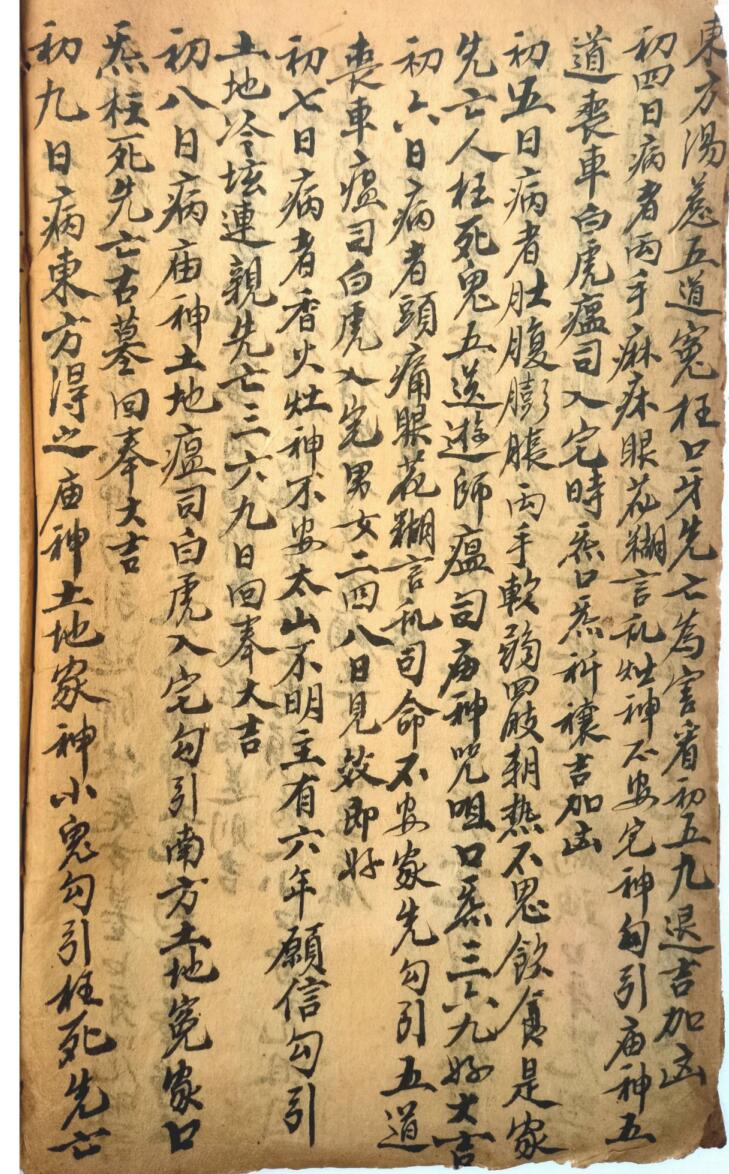 東方湯药五道冤枉口牙先亡為害看初五九退吉加凶
初四日病者両手麻床眼花糊言乱灶神不安宅神勾引庙神五
道喪車白虎瘟司入宅時炁口炁祈禳吉加凶
初五日病者肚腹膨脹両手軟弱四肢朝热不思飲食是家
先亡人枉死鬼五送遊師瘟司庙神咒咀口炁三六九好大吉
初六日病者頭痛眼花糊言乱司命不安家先勾引五道
喪車瘟司白虎入宅男女二四八日見效即好
初七日病者香火灶神不安太山不明主有六年願信勾引
土地冷坛連親先亡三六九日回奉大吉
初八日病庙神土地瘟司白虎入宅勾引南方土地冤家口
炁枉死先亡古墓回奉大吉
初九日病東方得之庙神土地家神小鬼勾引枉死先亡